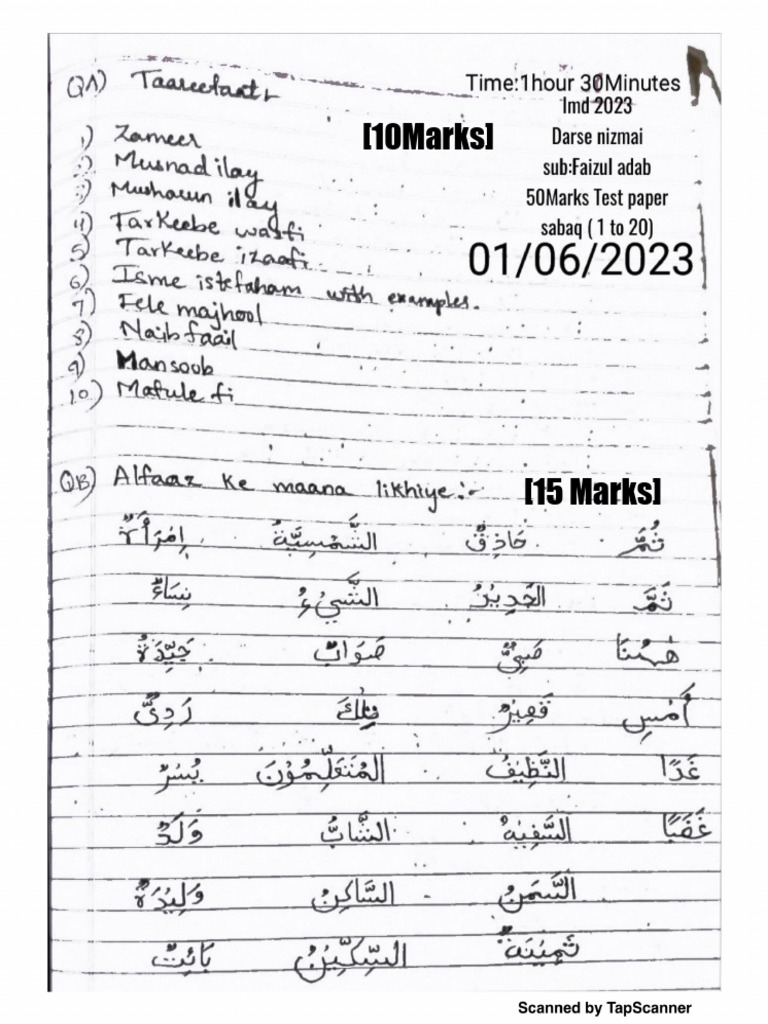 QA) Taareefaat:-
Time:1hour 30Minutes
Imd 2023
[10Marks]
Darse nizmai
sub:Faizul adab
50Marks Test paper
sabaq ( 1 to 20)
01/06/2023
1) Zameer
2) Musnad ilay
3) Musharun ilay
4) Tarkeebe wasfi
5) Tarkeebe izaafi
6) Isme istefaham with examples.
7) Fele majhool
8) Naib faail
9) Mansoob
10) Mafule fi
QB) Alfaaz ke maana likhiye:-
[15 Marks]
ثُمَّ حَاذِقٌ الشَّمْسِيَّةُ اِمْرَأَةٌ
ثَمَّ الْجَدِيْرُ الشَّيْءُ نِسَاءٌ
هٰهُنَا صَبِيٌّ صَوَابٌ جَيِّدَةٌ
أَمْسِ قَصِيْرٌ تِلْكَ رَدِيٌّ
غَدًا النَّظِيْفُ الْمُتَعَلِّمُوْنَ بُسْرٌ
غَضَبًا السَّفِيْهُ الشَّابُّ وَلَدٌ
السَّمَنُ السَّاكِنُ وَلِيْدَةٌ
ثَمِيْنَةٌ السِّكِّيْنُ بَائِتٌ
Scanned by TapScanner